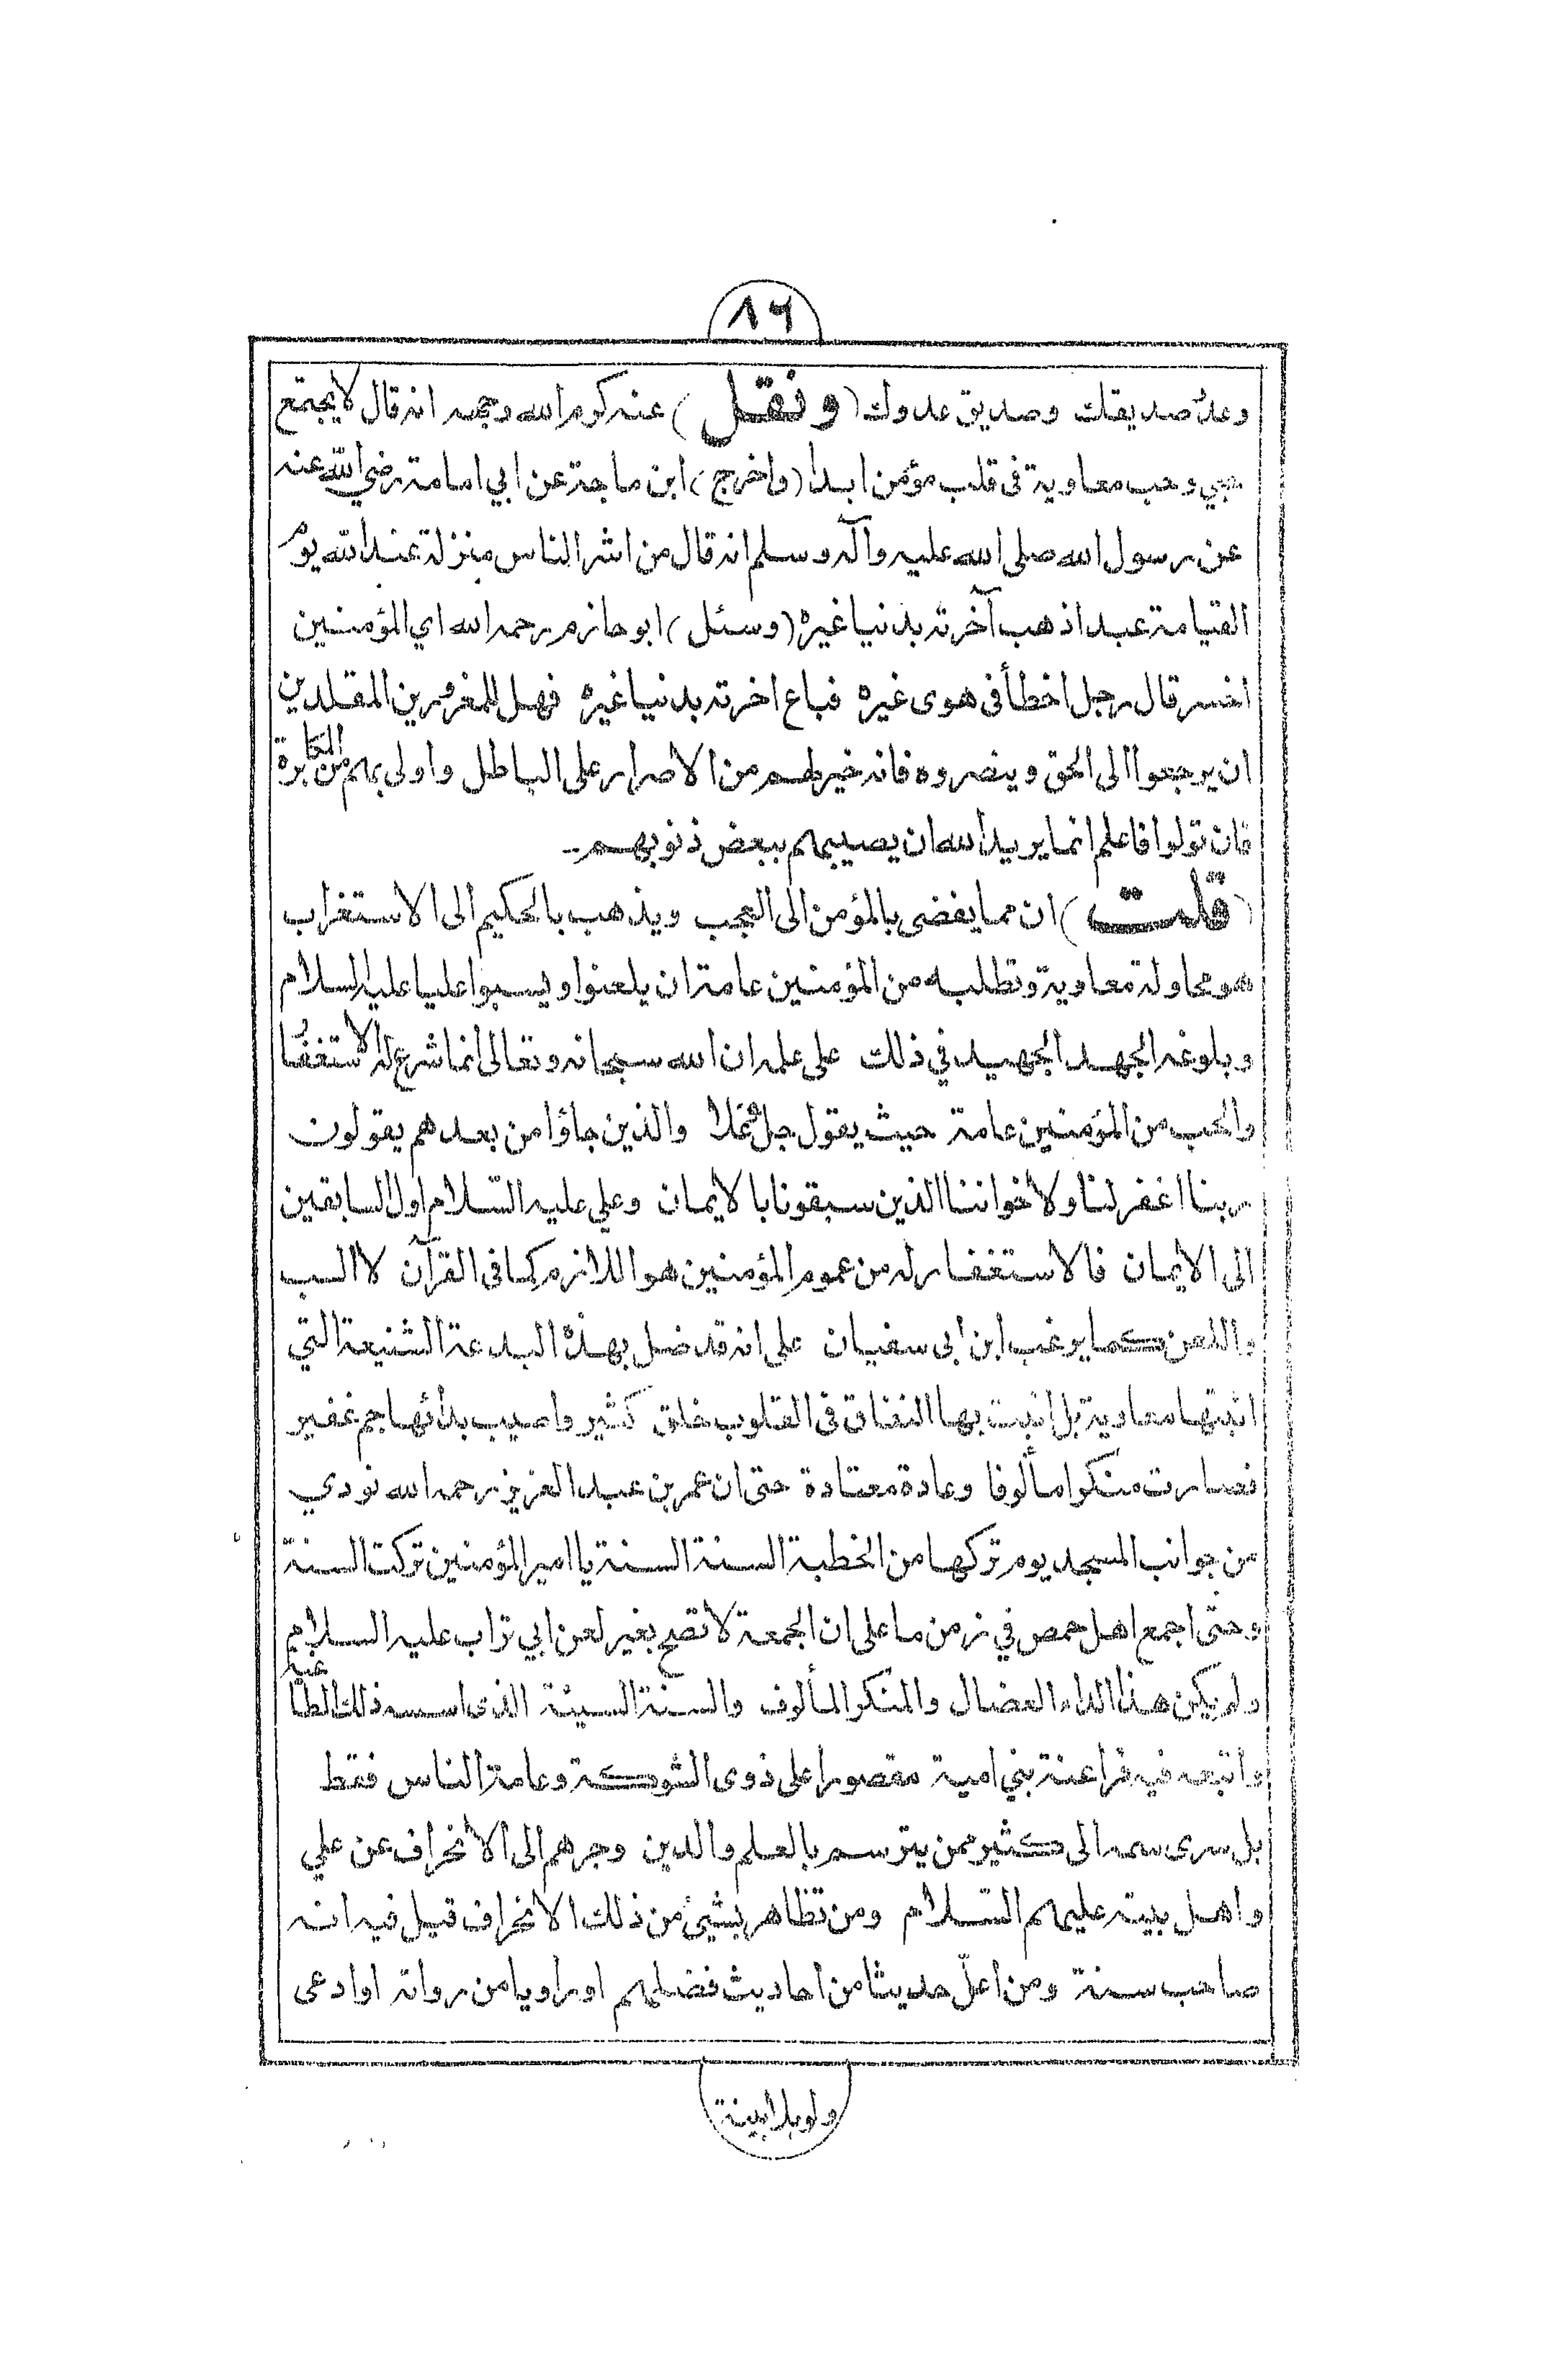 ٨٦
وعدو صديقك وصديق عدوك (ونقل) عنه كرم الله وجهه انه قال لا يجتمع
حبي وحب معاوية فى قلب مؤمن ابدا (واخرج) ابن ماجة عن ابي امامة رضي الله عنه
عن رسول الله صلى الله عليه وآله وسلم انه قال من اشر الناس منزلة عند الله يوم
القيامة عبد اذهب آخرته بدنيا غيره (وسئل) ابو حازم رحمه الله اي المؤمنين
اخسر قال رجل اخطأ فى هوى غيره فباع اخرته بدنيا غيره فهل للمغرورين المقلدين
ان يرجعوا الى الحق وينصروه فانه خير لهم من الاصرار على الباطل واولى بهم من المكابرة
فان تولوا فاعلم انما يريد الله ان يصيبهم ببعض ذنوبهم
(قلت) ان مما يفضى بالمؤمن الى العجب ويذهب بالحكيم الى الاستغراب
هو محاولة معاوية وتطلبه من المؤمنين عامة ان يلعنوا ويسبوا عليا عليه السلام
وبلوغه الجهد الجهيد في ذلك على علمه ان الله سبحانه وتعالى انما شرع له الاستغفار
والحب من المؤمنين عامة حيث يقول جل وعلا والذين جاؤا من بعدهم يقولون
ربنا اغفر لنا ولاخواننا الذين سبقونا بالايمان وعلي عليه السلام اول السابقين
الى الايمان فالاستغفار له من عموم المؤمنين هو اللازم كما فى القرآن لا السب
واللعن كما يرغب ابن ابى سفيان على انه قد ضل بهذه البدعة الشنيعة التي
اثبتها معاوية بل انبت بها النفاق فى القلوب خلق كثير واصيب بدائها جم غفير
فصارت منكرا مألوفا وعادة معتادة حتى ان عمر بن عبد العزيز رحمه الله نودي
من جوانب المسجد يوم تركها من الخطبة السنة السنة يا امير المؤمنين تركت السنة
وحتى اجمع اهل حمص في زمن ما على ان الجمعة لا تصح بغير لعن ابي تراب عليه السلام
ولم يكن هذا الداء العضال والمنكر المألوف والسنة السيئة الذى اسسه ذلك الطاغية
واتبعه فيه فراعنة بني امية مقصورا على ذوى الشوكة وعامة الناس فقط
بل سرى سمه الى كثير ممن يترسم بالعلم والدين وجرهم الى الانحراف عن علي
واهل بيته عليهم السلام ومن تظاهر بشيئ من ذلك الانحراف قيل فيه انه
صاحب سنة ومن اعلّ حديثا من احاديث فضلهم او راويا من رواته او ادعى
ولو بلا بينة